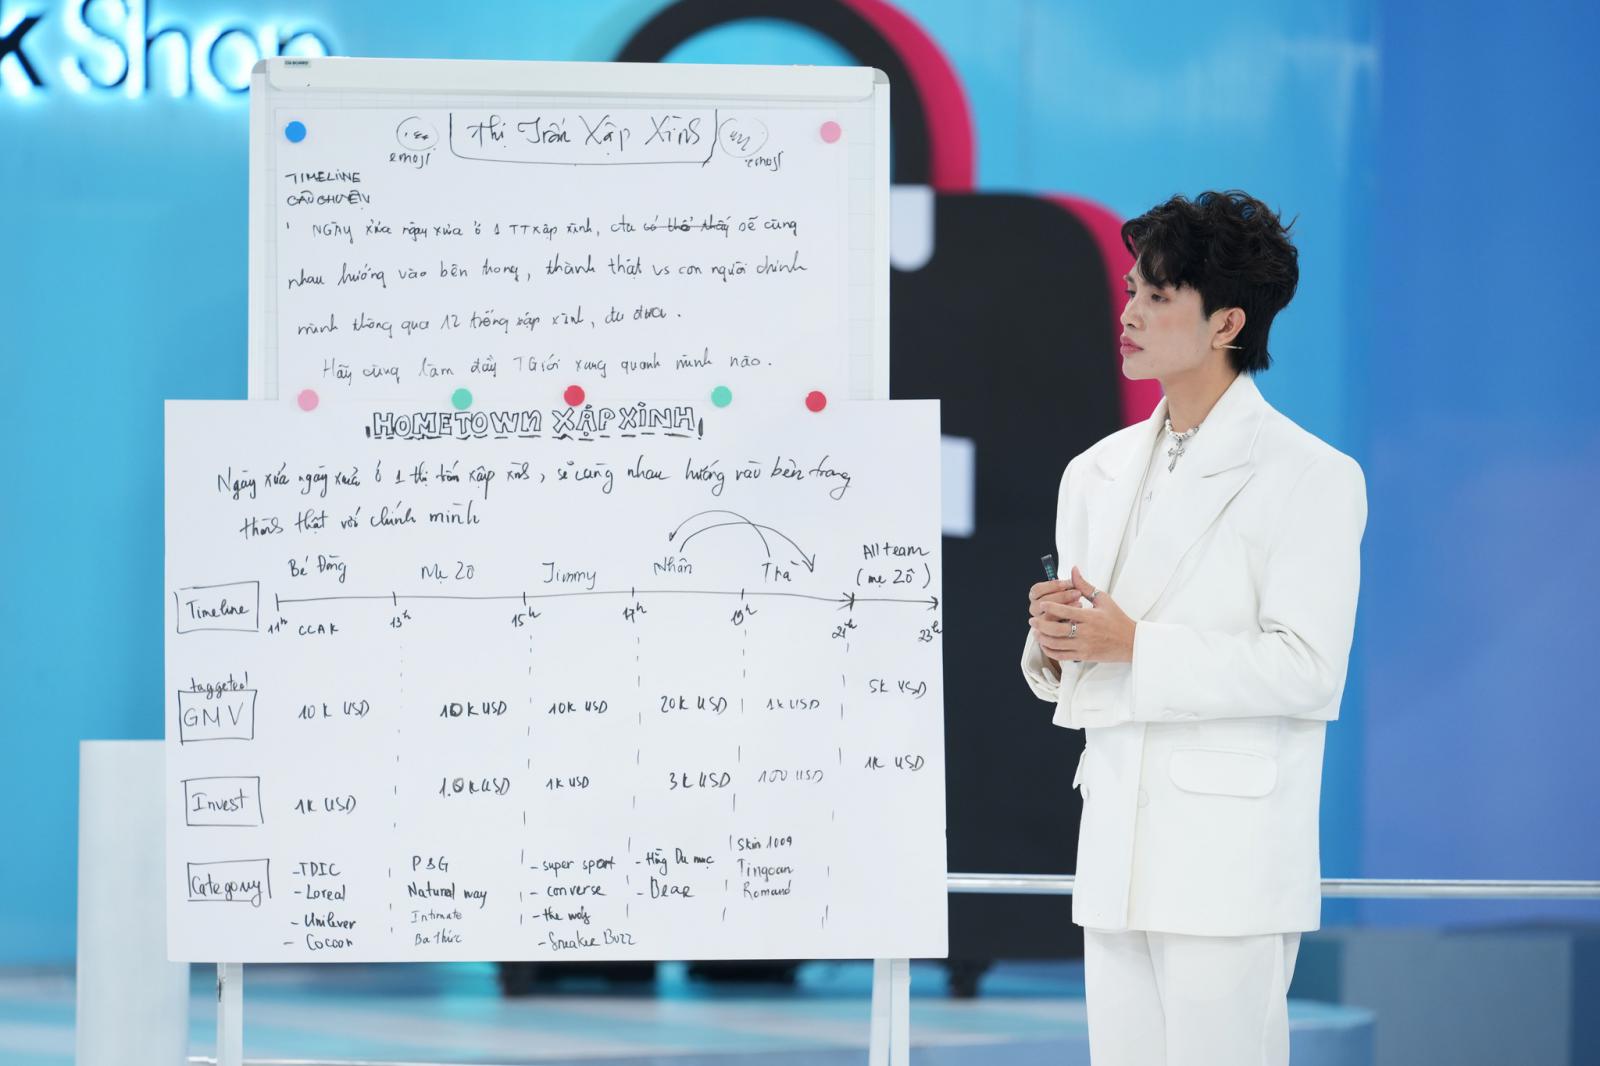 k Shop
Thị Trấn Xập Xình
emoji emoji
TIMELINE
CÂU CHUYỆN
NGÀY xửa ngày xưa ở 1 TT xập xình, có thể thấy sẽ cùng
nhau hướng vào bên trong, thành thật vs con người chính
mình thông qua 12 tiếng xập xình, đu đưa.
Hãy cùng làm đầy TGiới xung quanh mình nào.
HOMETOWN XẬP XÌNH
Ngày xửa ngày xưa ở 1 thị trấn xập xình, sẽ cùng nhau hướng vào bên trong
thành thật với chính mình
Bé Đồng Mẹ Zô Jimmy Nhân Thà All team
(mẹ Zô)
Timeline
11h CCAK 13h 15h 17h 19h 21h 23h
taggeted
GMV 10K USD 10K USD 10K USD 20K USD 1K USD 5K USD
Invest 1K USD 1.0K USD 1K USD 3K USD 100 USD 1K USD
Category
- TDIC P&G - super sport - Skin 1004
- Loreal Natural way - converse - Dear Tingoan
- Unilever Intimate - the way Romand
- Cocoon Ba Thức - Sneaker Buzz